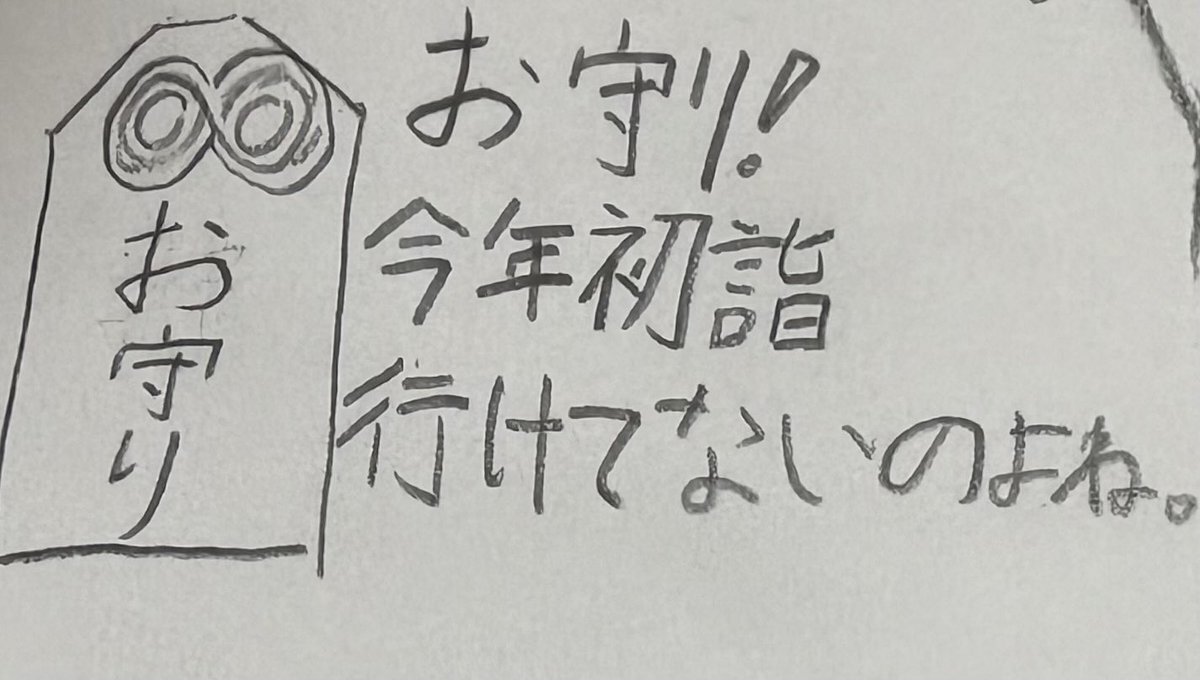 お守り
お守り!
今年初詣
行けてないのよね。